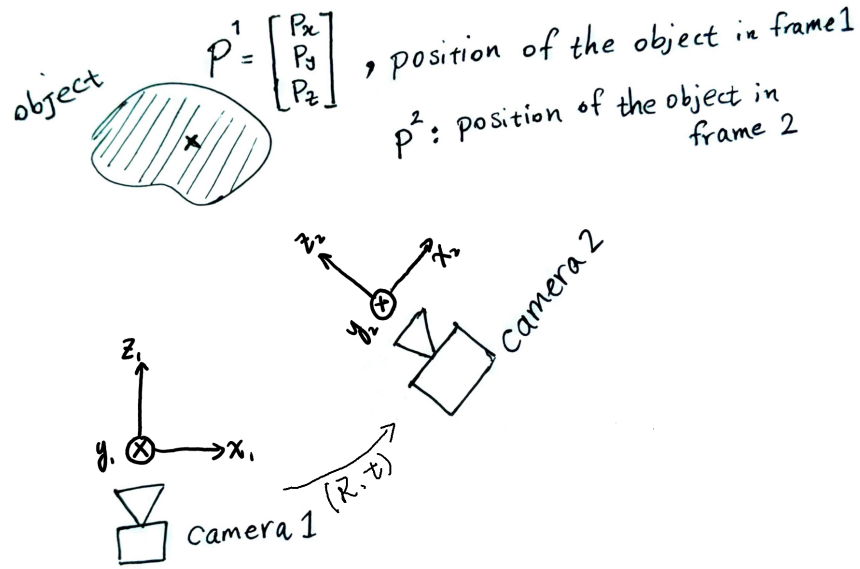 P¹ = [Px Py Pz] , position of the object in frame 1
object
P² : position of the object in
frame 2
z₂
x₂
y₂
camera 2
z₁
y₁
x₁
(R, t)
camera 1